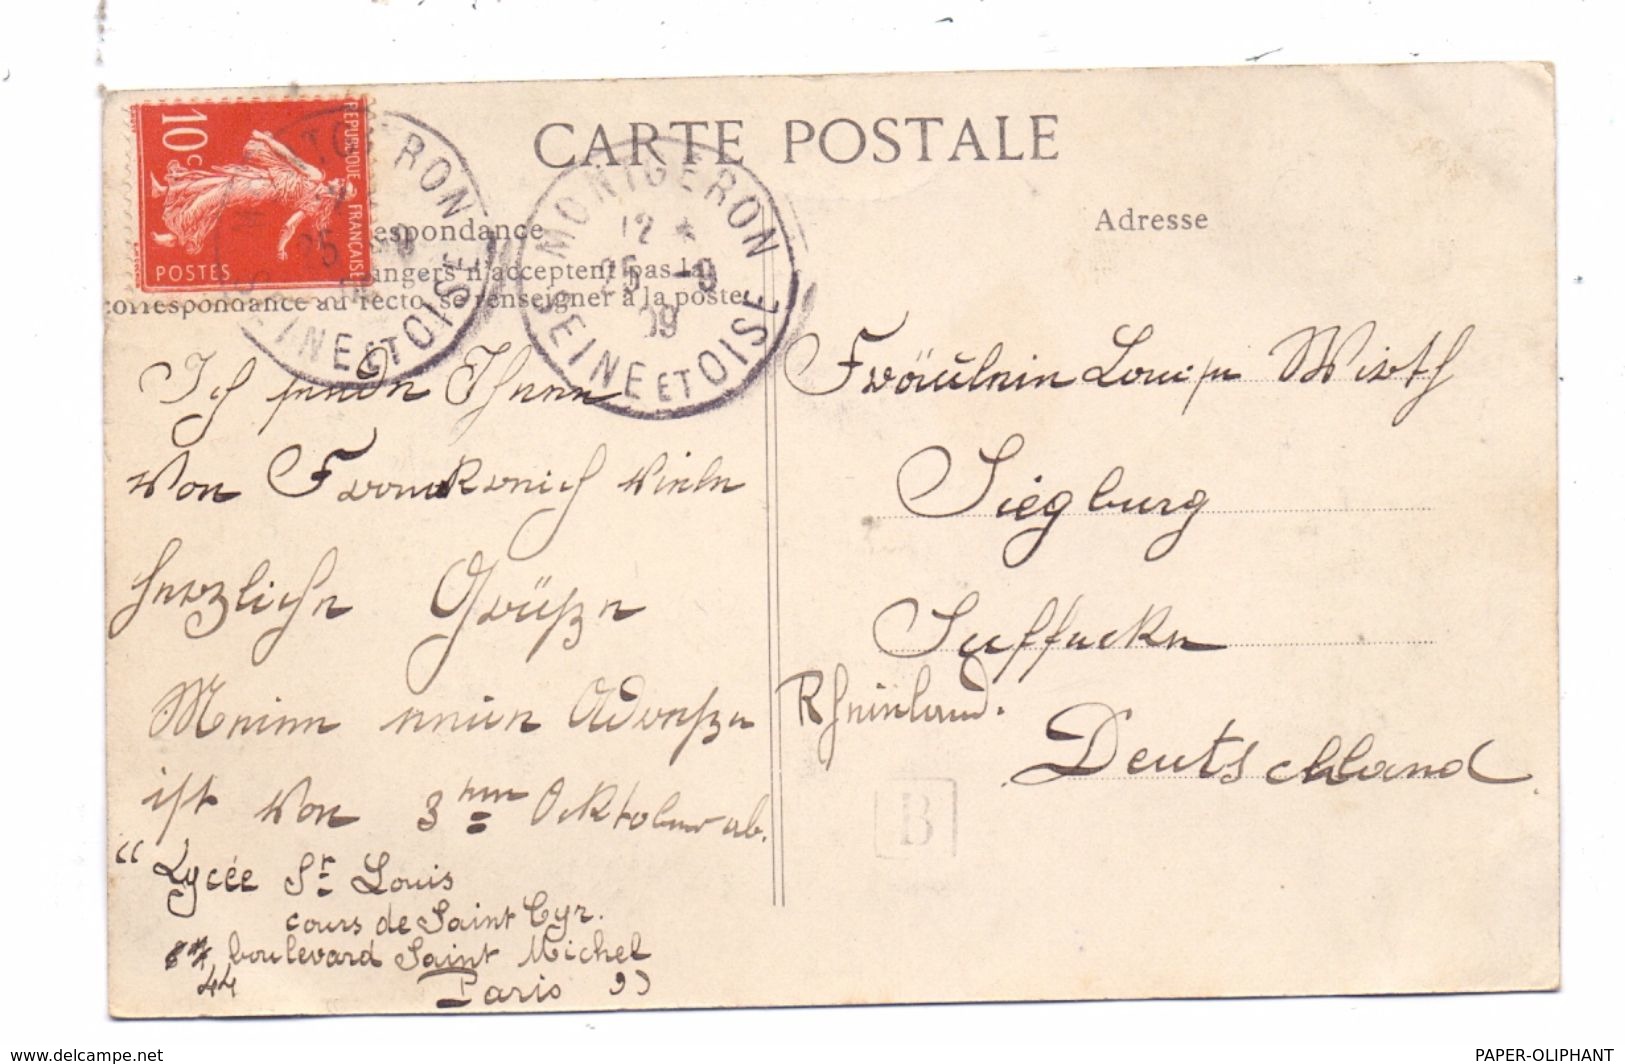 CARTE POSTALE
10c
REPUBLIQUE FRANÇAISE
POSTES
MONTGERON
12 *
25 -9
09
SEINE ET OISE
espondance
angers n'acceptent pas la
correspondance au recto, se renseigner à la poste
Adresse
Ich sende Ihnen
von Frankreich viele
herzliche Grüße
Meine neue Adresse
ist von 3ten Ocktober ab.
"Lycée St Louis
cours de Saint Cyr.
44 boulevard Saint Michel
Paris "
Fräulein Louise Wirth
Siegburg
Rheinland.
Deutschland
B
PAPER-OLIPHANT
www.delcampe.net